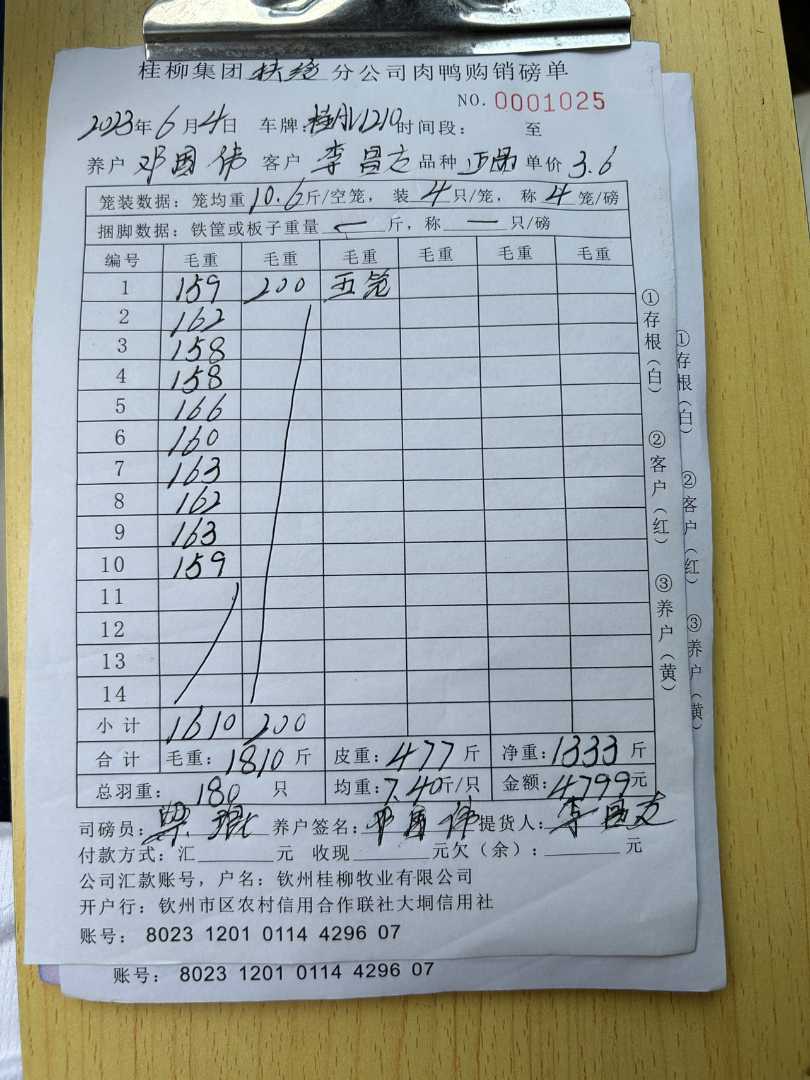 桂柳集团扶绥分公司肉鸭购销磅单
NO. 0001025
2023年6月4日 车牌: 1210 时间段: 至
养户 邓国伟 客户 李昌志 品种 正品 单价 3.6
笼装数据: 笼均重10.6斤/空笼, 装4只/笼, 称4笼/磅
捆脚数据: 铁筐或板子重量 一 斤, 称 一 只/磅
编号 毛重 毛重 毛重 毛重 毛重 毛重
1 159 200 五笼
2 162
3 158
4 158
5 166
6 160
7 163
8 162
9 163
10 159
11
12
13
14
小计 1610 200
合计 毛重: 1810斤 皮重: 477斤 净重: 1333斤
总羽重: 180 只 均重: 7.40斤/只 金额: 4799元
司磅员: 养户签名: 邓国伟 提货人: 李昌志
付款方式: 汇 元 收现 元欠(余): 元
公司汇款账号, 户名: 钦州桂柳牧业有限公司
开户行: 钦州市区农村信用合作联社大垌信用社
账号: 8023 1201 0114 4296 07
①存根(白) ②客户(红) ③养户(黄)
①存根(白) ②客户(红) ③养户(黄)
账号: 8023 1201 0114 4296 07